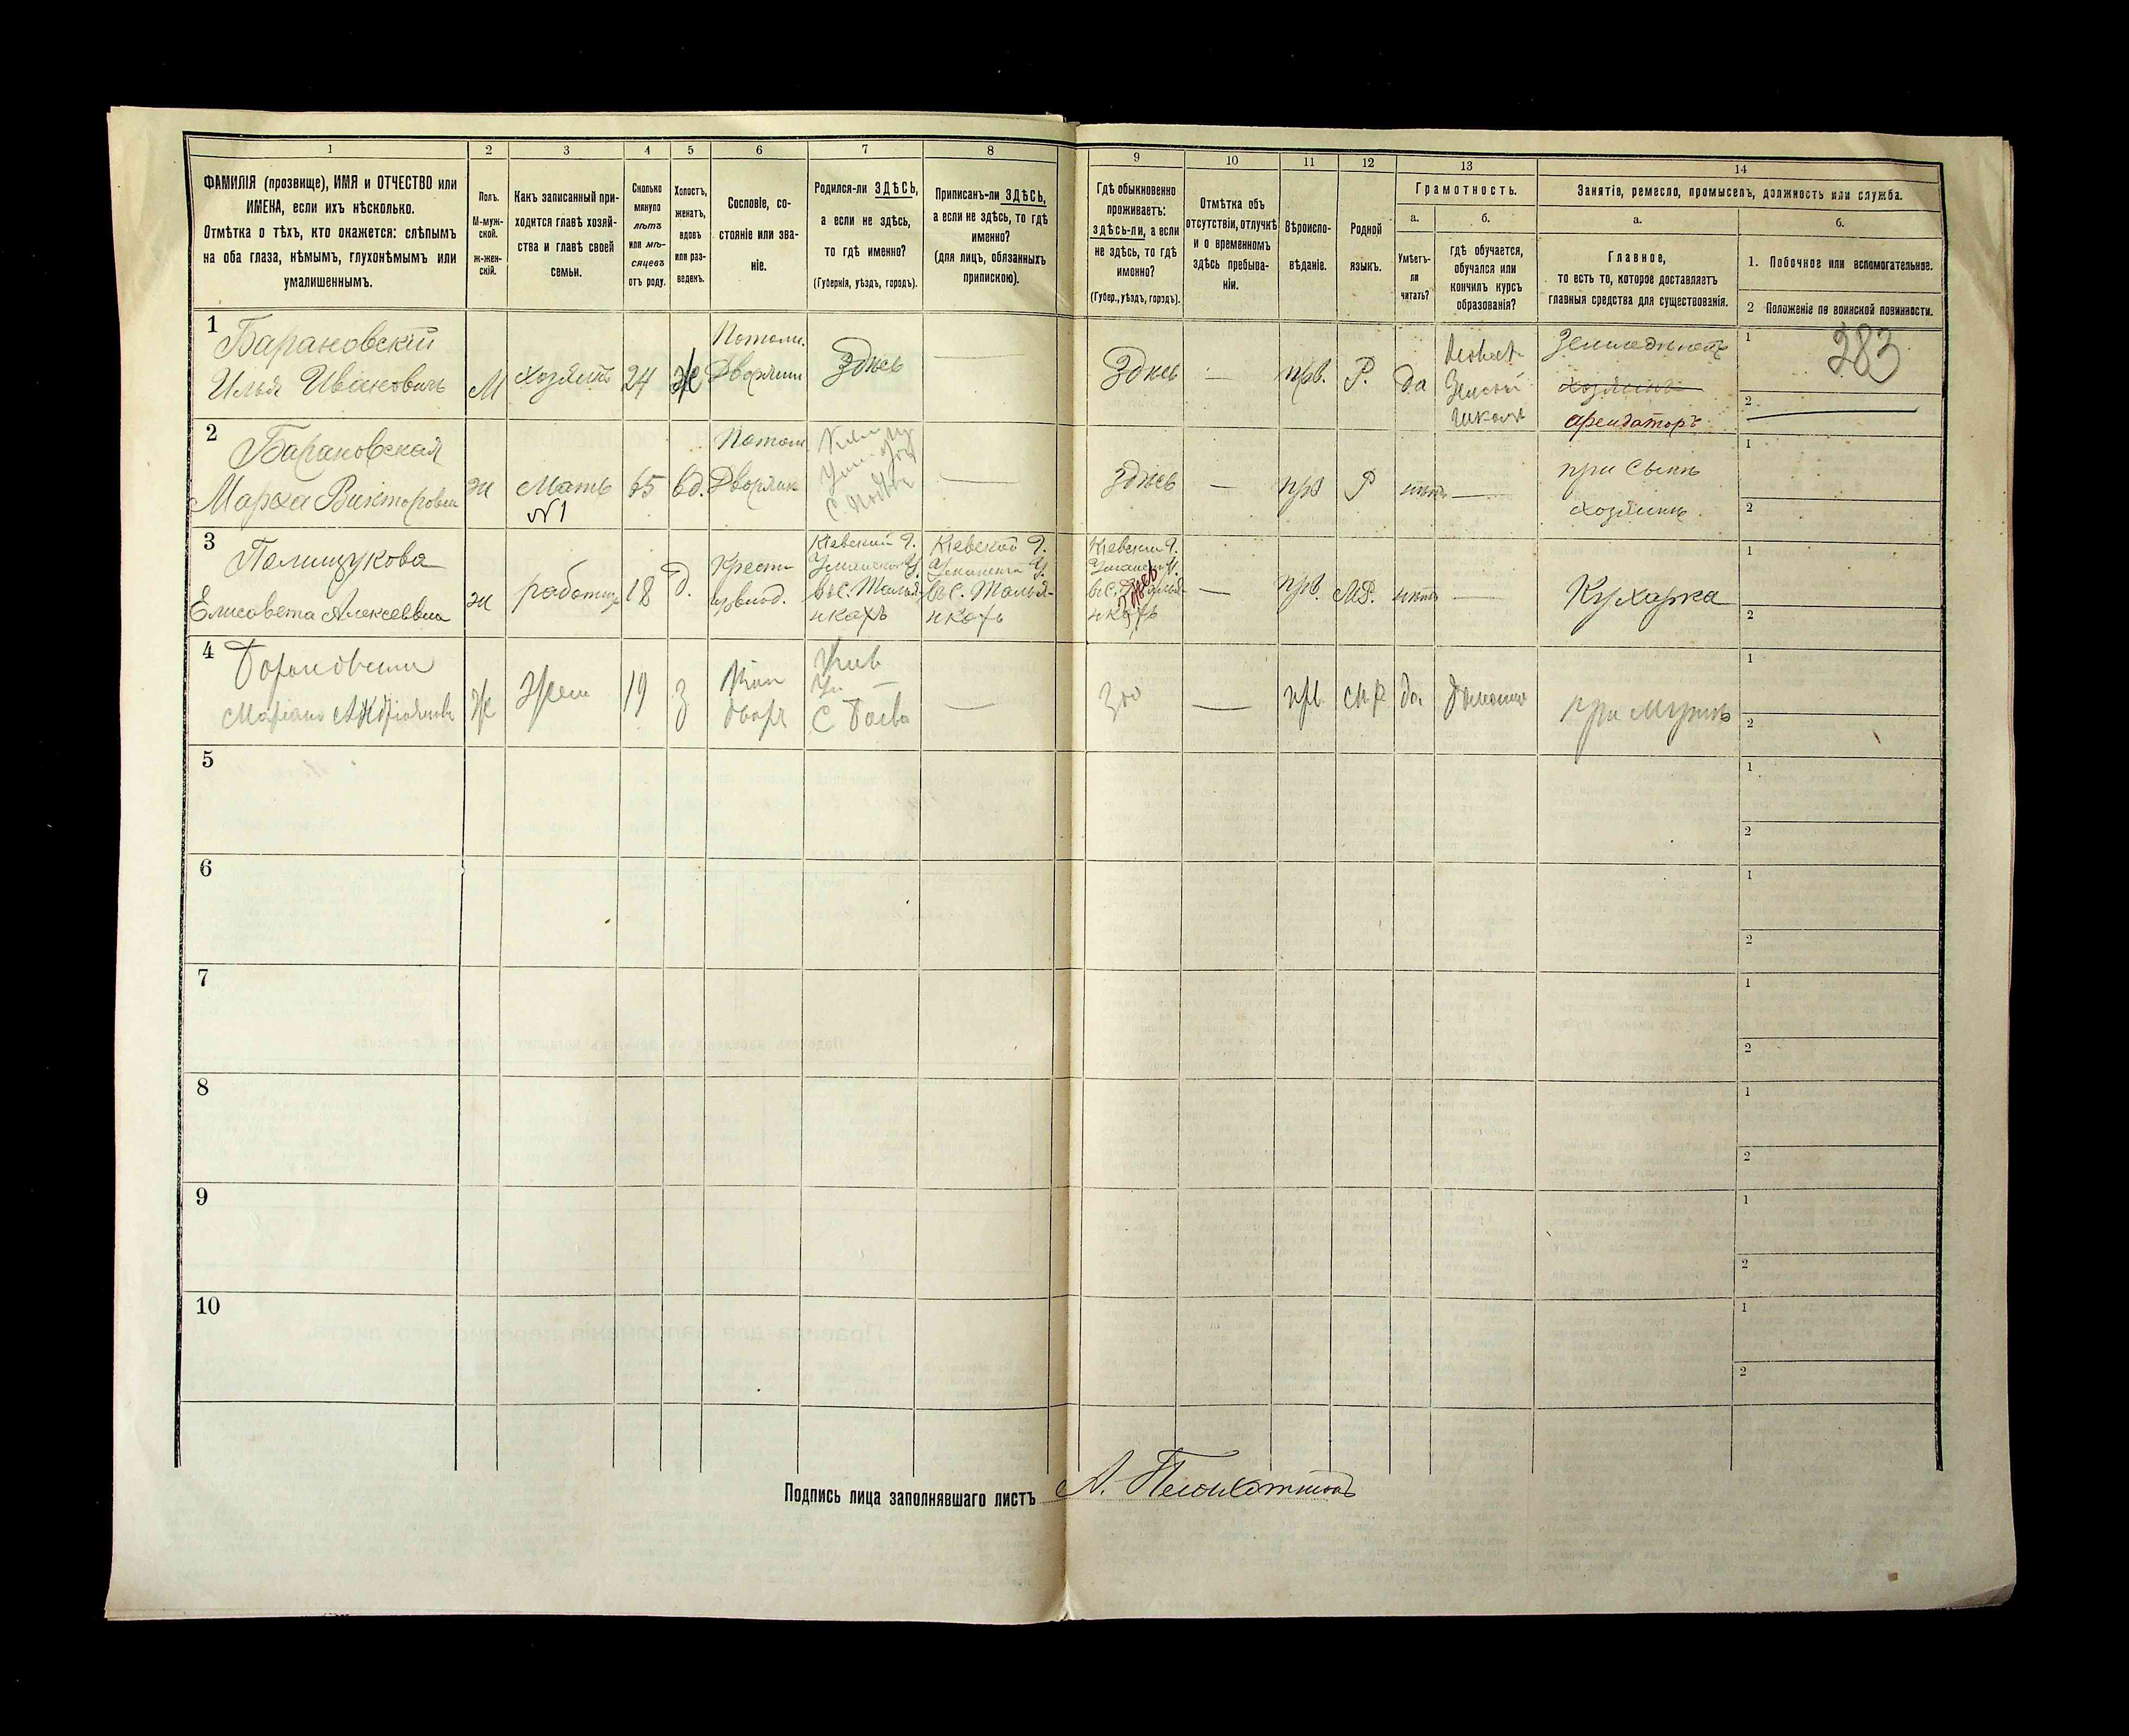 1
2
3
4
5
6
7
8
9
10
11
12
13
14
ФАМИЛІЯ (прозвище), ИМЯ и ОТЧЕСТВО или
ИМЕНА, если ихъ нѣсколько.
Отмѣтка о тѣхъ, кто окажется: слѣпымъ
на оба глаза, нѣмымъ, глухонѣмымъ или
умалишеннымъ.
Полъ.
М-муж-
ской.
ж-жен-
скій.
Какъ записанный при-
ходится главѣ хозяй-
ства и главѣ своей
семьи.
Сколько
минуло
лѣтъ
или мѣ-
сяцевъ
отъ роду.
Холостъ,
женатъ,
вдовъ
или раз-
веденъ.
Сословіе, со-
стояніе или зва-
ніе.
Родился-ли ЗДѢСЬ,
а если не здѣсь,
то гдѣ именно?
(Губернія, уѣздъ, городъ).
Приписанъ-ли ЗДѢСЬ,
а если не здѣсь, то гдѣ
именно?
(для лицъ, обязанныхъ
припискою).
Гдѣ обыкновенно
проживаетъ:
здѣсь-ли, а если
не здѣсь, то гдѣ
именно?
(Губер., уѣздъ, городъ).
Отмѣтка объ
отсутствіи, отлучкѣ
и о временномъ
здѣсь пребыва-
ніи.
Вѣроиспо-
вѣданіе.
Родной
языкъ.
Грамотность.
а.
Умѣетъ-
ли
читать?
б.
гдѣ обучается,
обучался или
кончилъ курсъ
образованія?
Занятіе, ремесло, промыселъ, должность или служба.
а.
Главное,
то есть то, которое доставляетъ
главныя средства для существованія.
б.
1. Побочное или вспомогательное.
2 Положеніе по воинской повинности.
1
Барановскій
Илья Ивановичъ
М
хозяинъ
24
Ж
Потом.
Дворянин
Здѣсь
Здѣсь
прв.
Р.
да
школѣ
хозяинъ
арендаторъ
1
283
2
2
Барановская
Марѳа Викторовна
ж
Мать
№1
65
вд.
Потом
Дворянк
Здѣсь
прв
Р
нѣтъ
при Сынѣ
хозяинѣ.
1
2
3
Полищукова
Елисовета Алексеевна
ж
работница
18
д.
Кіевской Г.
Уманскаго У.
въ С. Талья-
нкахъ
Кіевской Г.
Уманскаго У.
въ С. Талья-
нкахъ
Кіевской Г.
Уманскаго У.
въ С. Талья-
нкахъ
Здѣсь
прв.
М.Р.
нѣтъ
Кухарка
1
2
4
Ж
Жена
19
З
С
да
при мужѣ
1
2
5
1
2
6
1
2
7
1
2
8
1
2
9
1
2
10
1
2
Подпись лица заполнявшаго листъ